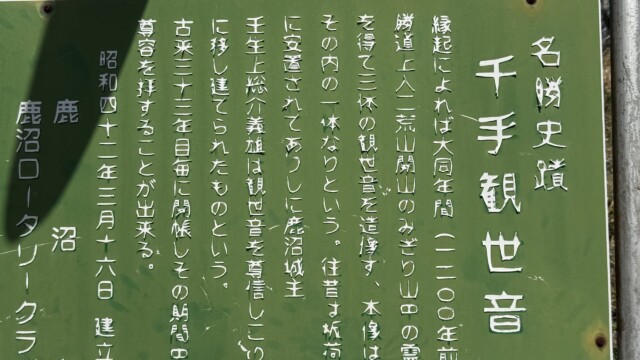 名勝史蹟
千手観世音
縁起によれば大同年間（一二〇〇年前
勝道上人二荒山開山のみぎり山中の霊
を得て三体の観世音を造浮す、本像は
その内の一体なりという。往昔は坂荷
に安置されてあうしに鹿沼城主
壬生上総介義雄は観世音を尊信しこ
に移し建てられたものという。
古来三十三年目毎に開帳しその期間中
尊容を拝することが出来る。
昭和四十二年三月十六日 建立
鹿沼
鹿沼ロータリークラ